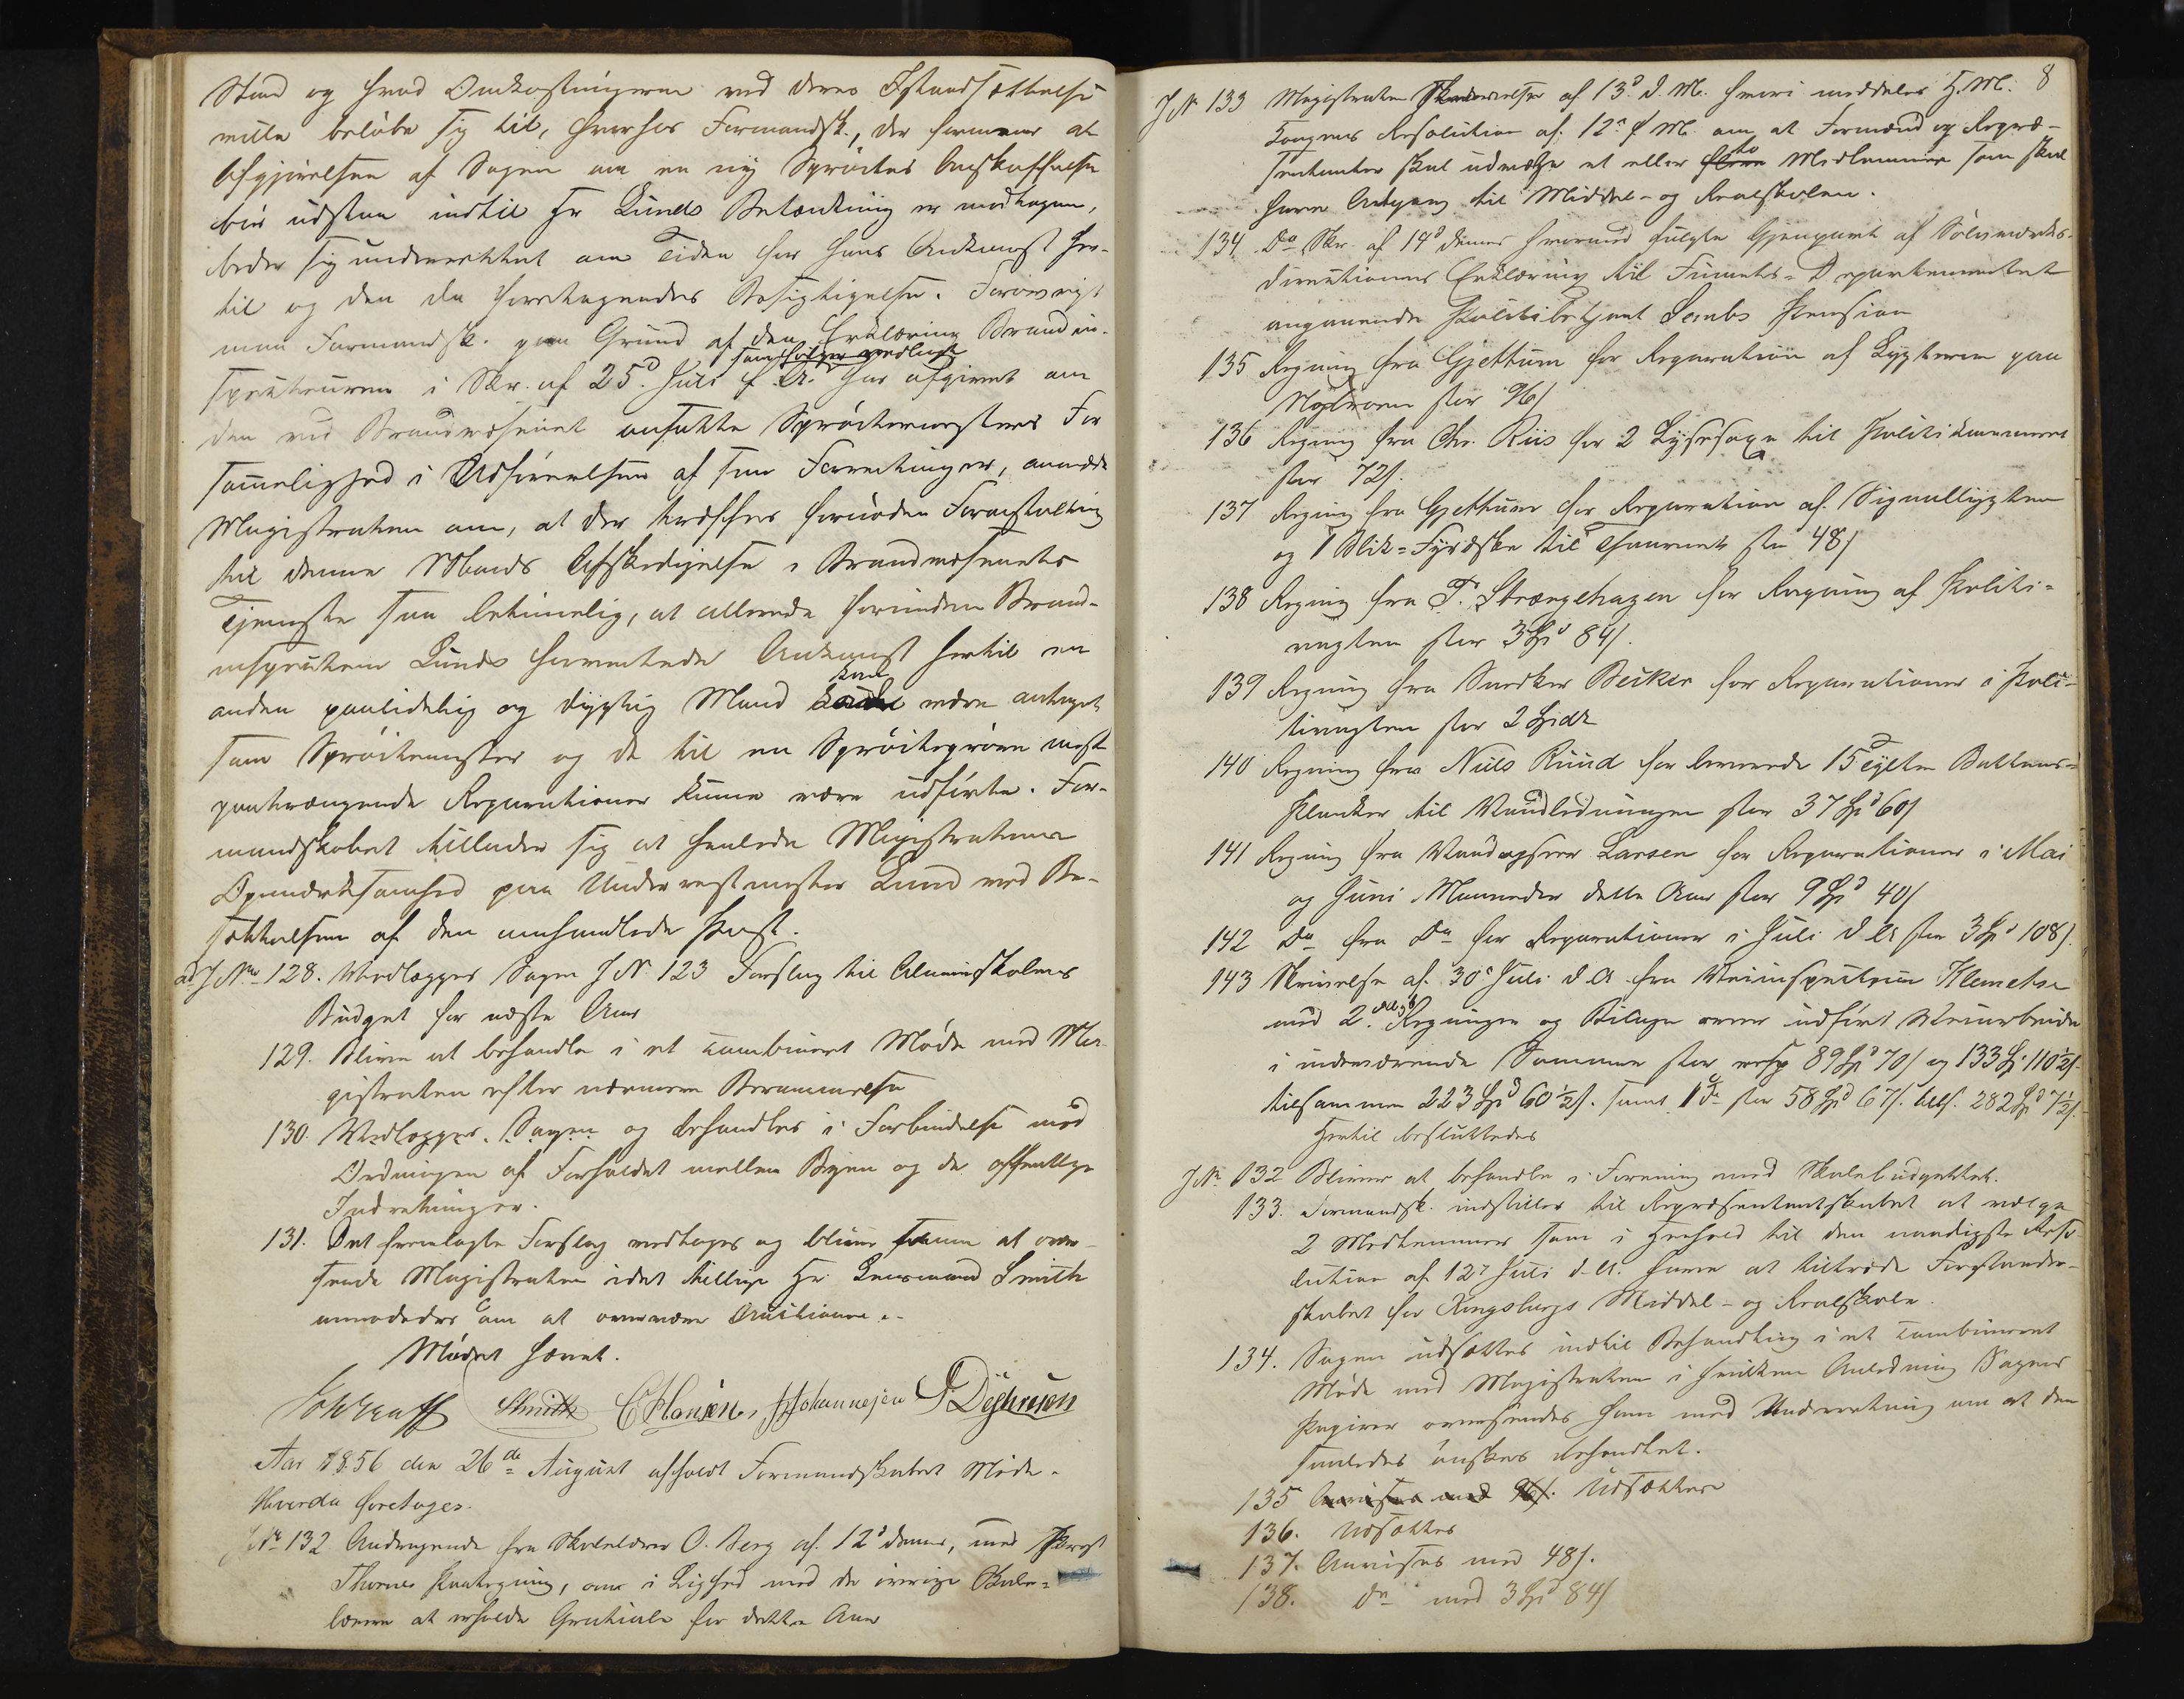 Stand og hvad Omkostningerne ved deres Istandsættelse
ville beløbe sig til, hvorfor Formandsk., der formener at
Afgjørelsen af Sagen om en ny Sprøites Anskaffelse
bør udstaa indtil Hr Lunds Betænkning er modtagen,
beder sig underrettet om Tiden for hans Ankomst her-
til og den da foretagendes Besigtigelse. Forøvrigt
maa Formandsk. paa Grund af den Erklæring Brandin-
som følger vedlagt
specteuren i Skr. af 25d. Juli d. A. har afgivet om
den ved Brandvæsenet ansatte Sprøitemesters For
sømmelighed i Udførelsen af sine Forretninger, anmode
Magistraten om, at der træffes fornøden Foranstaltning
til denne Mands Afskedigelse i Brandvæsenets
Tjeneste saa betimelig, at allerede forinden Brand-
inspecteur Lunds forventede Ankomst hertil en
kan
anden paalidelig og dygtig Mand være antaget
som Sprøitemester og de til en Sprøiteprøve mest
paatrængende Reparationer kunne være udførte. For-
mandskabet tillader sig at henlede Magistratens
Opmærksomhed paa Undervestmester Lund ved Be-
sættelsen af den omhandlede Post.
ad J No 128. Vedlægges Sagen J N. 123 Forslag til Almueskolens
Budget for næste Aar
129. Bliver at behandle i et combineret Møde med Ma-
gistraten efter nærmere Berammelse
130. Vedlægges Sagen og behandles i Forbindelse med
Ordningen af Forholdet mellem Byen og de offentlige
Indretninger.
131. Det fremlagte Forslag vedtages og bliver at over-
sende Magistraten idet tillige Hr. Smith
anmodedes om at overvære Auctionen.
Mødet hævet.
Smith C Hansen, Johannesen
Aar 1856 den 26de August afholdt Formandskabet Møde.
Hvorda foretoges.
J No 132 Andragende fra Skolelærer O. Berg af 12d dennes, med Provst
Thornes Paategning, om i Lighed med de øvrige Skole-
lærere at erholde Gratiale for dette Aar
8
J N 133 Magistratens Skrivelse af 13d. d. M. hvori meddeles H. M.
Kongens Resolution af 12te f M. om at Formænd og Repræ-
to
sentanter skal udvælge et eller flere Medlemmer som skal
have Adgang til Middel- og Realskolen.
134 Do Skr. af 14d dennes hvormed fulgte Gjenpart af Sølvværks-
directionens Erklæring til Finants-Departementet
angaaende Politibetjent Pension
135 Regning fra Gjettum for Reparation af Lygterne paa
stor 96s
136 Regning fra Chr. Riis for 2 Lysesaxe til Politikammeret
stor 72s.
137 Regning fra Gjettum for Reparation af Signallygten
og 1 Blik-Fyræske til Taarnet stor 48s
138 Regning fra T. Strængehagen for Rengjøring af Politi-
vagten stor 3 Spd 84s.
139 Regning fra Snedker Becker for Reparationer i Poli-
tivagten stor 2 Spdlr
140 Regning fra Niels Ruud for leverede 15 Tylter Battens-
Planker til Vandledningen stor 37 Spd 60s
141 Regning fra Vandopsyer Larsen for Reparationer i Mai
og Juni Maaneder dette Aar stor 9 Spd 40s
142 Do fra Do for Reparationer i Juli d. A. stor 3 Spd 108s.
143 Skrivelse af 30te Juli d. A. fra Veiinspecteur Klemetsen
med 2. Regninger og Bilage over udført Veiarbeide
i indeværende Sommer stor resp 89 Spd 70s og 133 Sp. 110½s.
tilsammen 223 Spd 60½s. samt 1 do stor 58 Spd 67s. tils. 282 Spd 7½s.
Hertil besluttedes
J No 132 Bliver at behandle i Forening med Skolebudgettet.
133. Formandsk. indstiller til Repræsentantskabet at vælge
2 Medlemmer som i Henhold til den naadigste Reso
lution af 12te Juli d. A. have at tiltræde Forstander-
skabet for Kongsbergs Middel- og Realskole.
134. Sagen udsættes indtil Behandling i et combineret
Møde med Magistraten i hvilken Anledning Sagens
Papirer oversendes ham med Underretning om at den
saaledes ønskes behandlet.
135 Anvises med 96s. Udsættes
136. Udsættes
137. Anvises med 48s.
138. do med 3 Spd 84s